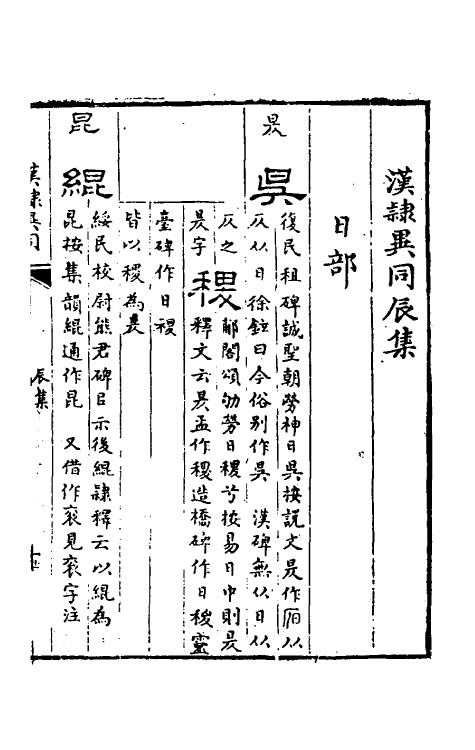 漢隸異同辰集
日部
昃
吳復民租碑誠聖朝勞神日吳按說文昃作𣅔从
仄从日徐鉉曰今俗別作吳 漢碑無从日从
仄之昃字
稷郙閣頌劬勞日稷兮按易日中則昃
釋文云昃孟作稷造橋碑作日稷靈
臺碑作日稷
皆以稷為昃
昆
緄綏民校尉熊君碑㠯示後緄隸釋云以緄為
昆按集韻緄通作昆 又借作衮見衮字注
漢隸異同
辰集